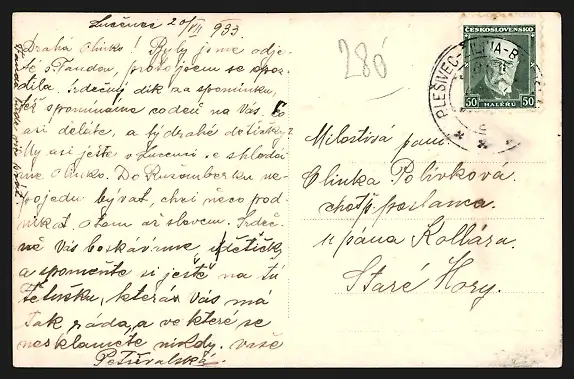 Lučenec 20/VII 933.
Drahá Olinko! Byly jsme odje-
té s Fandou, proto jsem se opoz-
dila. Srdečný dík za spomínku,
též spomínáme co deň na Vás. Co
asi děláte, a ty drahé detičky?
My asi ještě v Lučenci se shledá-
me Olinko. Do Ružomberku ne-
pojedu bývat, chci něco pod-
nikat, o tom až slovem. Srdeč-
ně Vás boskávame, i detičky
a spomeňte si ještě na tú
tetušku, která Vás má
tak ráda, a ve které se
nesklamete nikdy. Vaše
Petřvalská.
280
ČESKOSLOVENSKO
50 HALÉŘŮ 50
PLEŠIVEC-ZILINA-B
Milostivá paní
Olinka Polívková
choť p. poslanca
u pána Kollára.
Staré Hory.